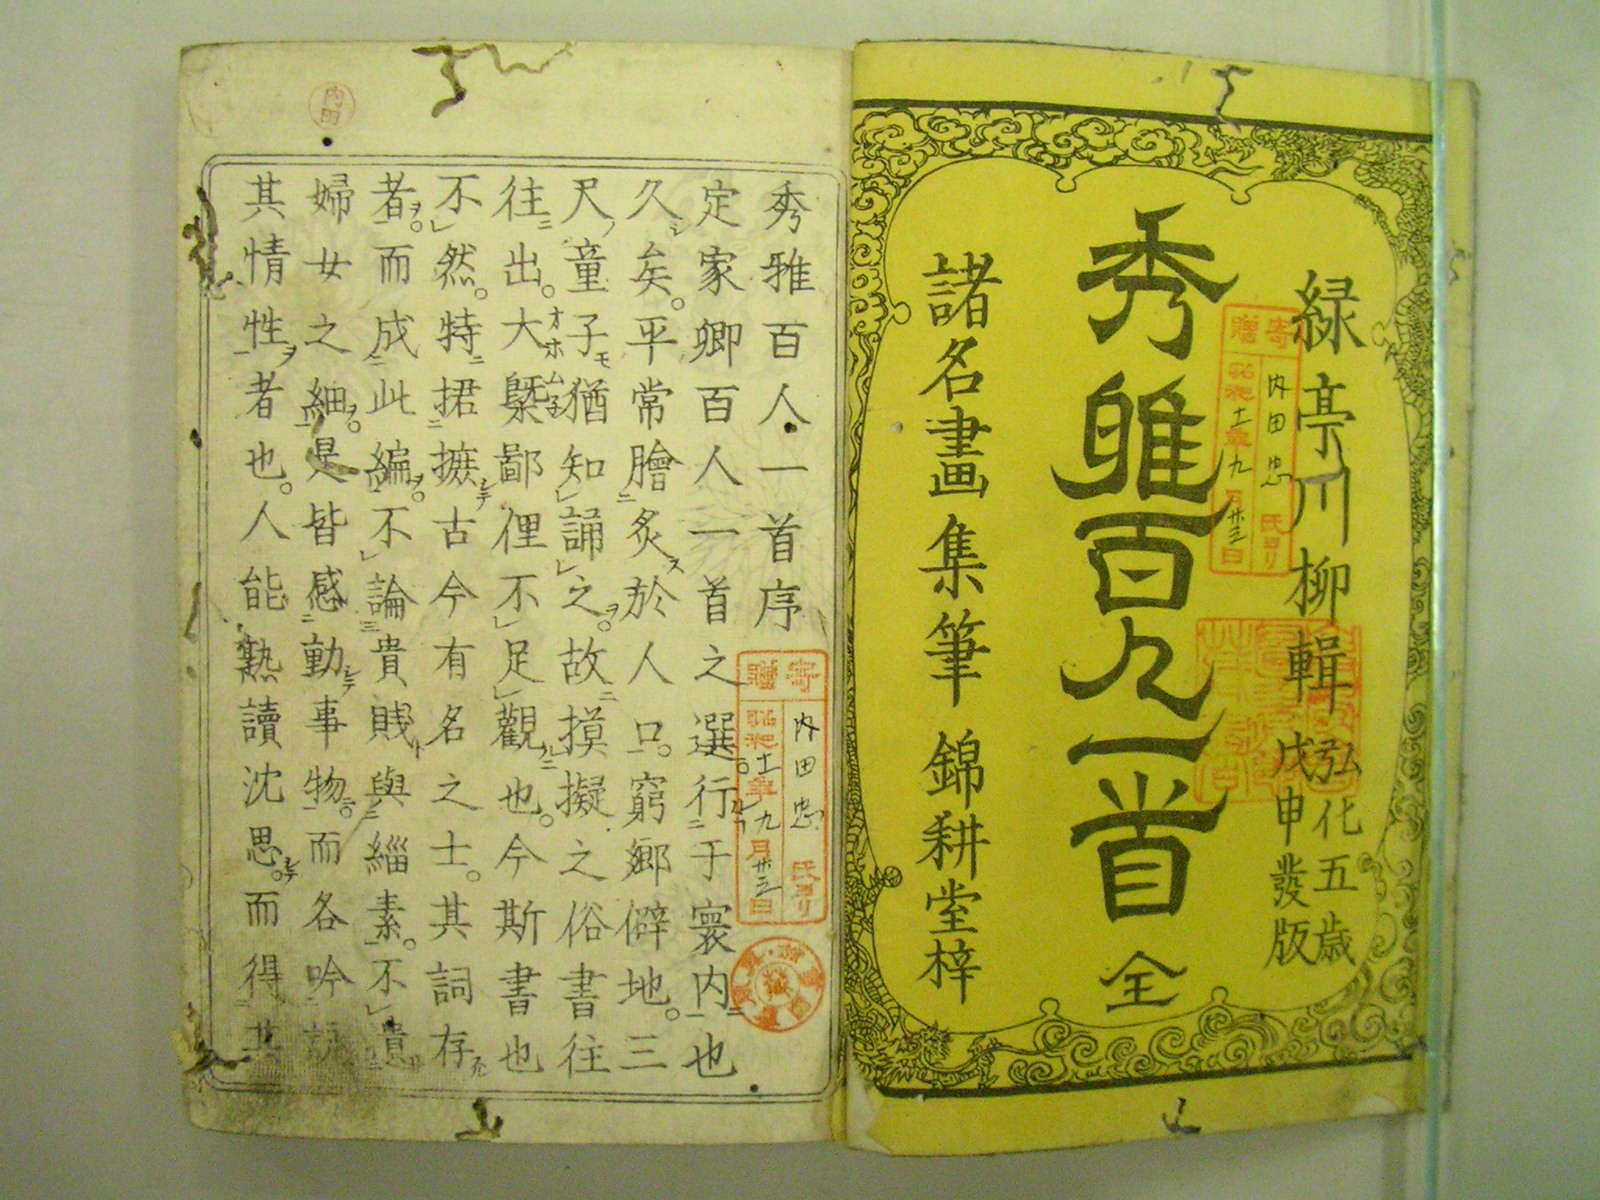 緑亭川柳輯
弘化五歳
戊申發版
秀雅百人一首 全
諸名畫集筆 錦耕堂梓
寄贈
内田忠氏ヨリ
昭和十一年九月廿三日
秀雅百人一首序
定家卿百人一首之選。行于寰内也
久矣。平常膾炙於人口。窮郷僻地。三
尺童子猶知誦之。故摸擬之俗書往
往出。大槩鄙俚不足觀也。今斯書也
不然。特捃摭古今有名之士。其詞存
者。而成此編。不論貴賎與緇素。不遺
婦女之細。是皆感動事物。而各吟詠
其情性者也。人能熟讀沈思。而得其
寄贈
内田忠氏ヨリ
昭和十一年九月廿三日
内田